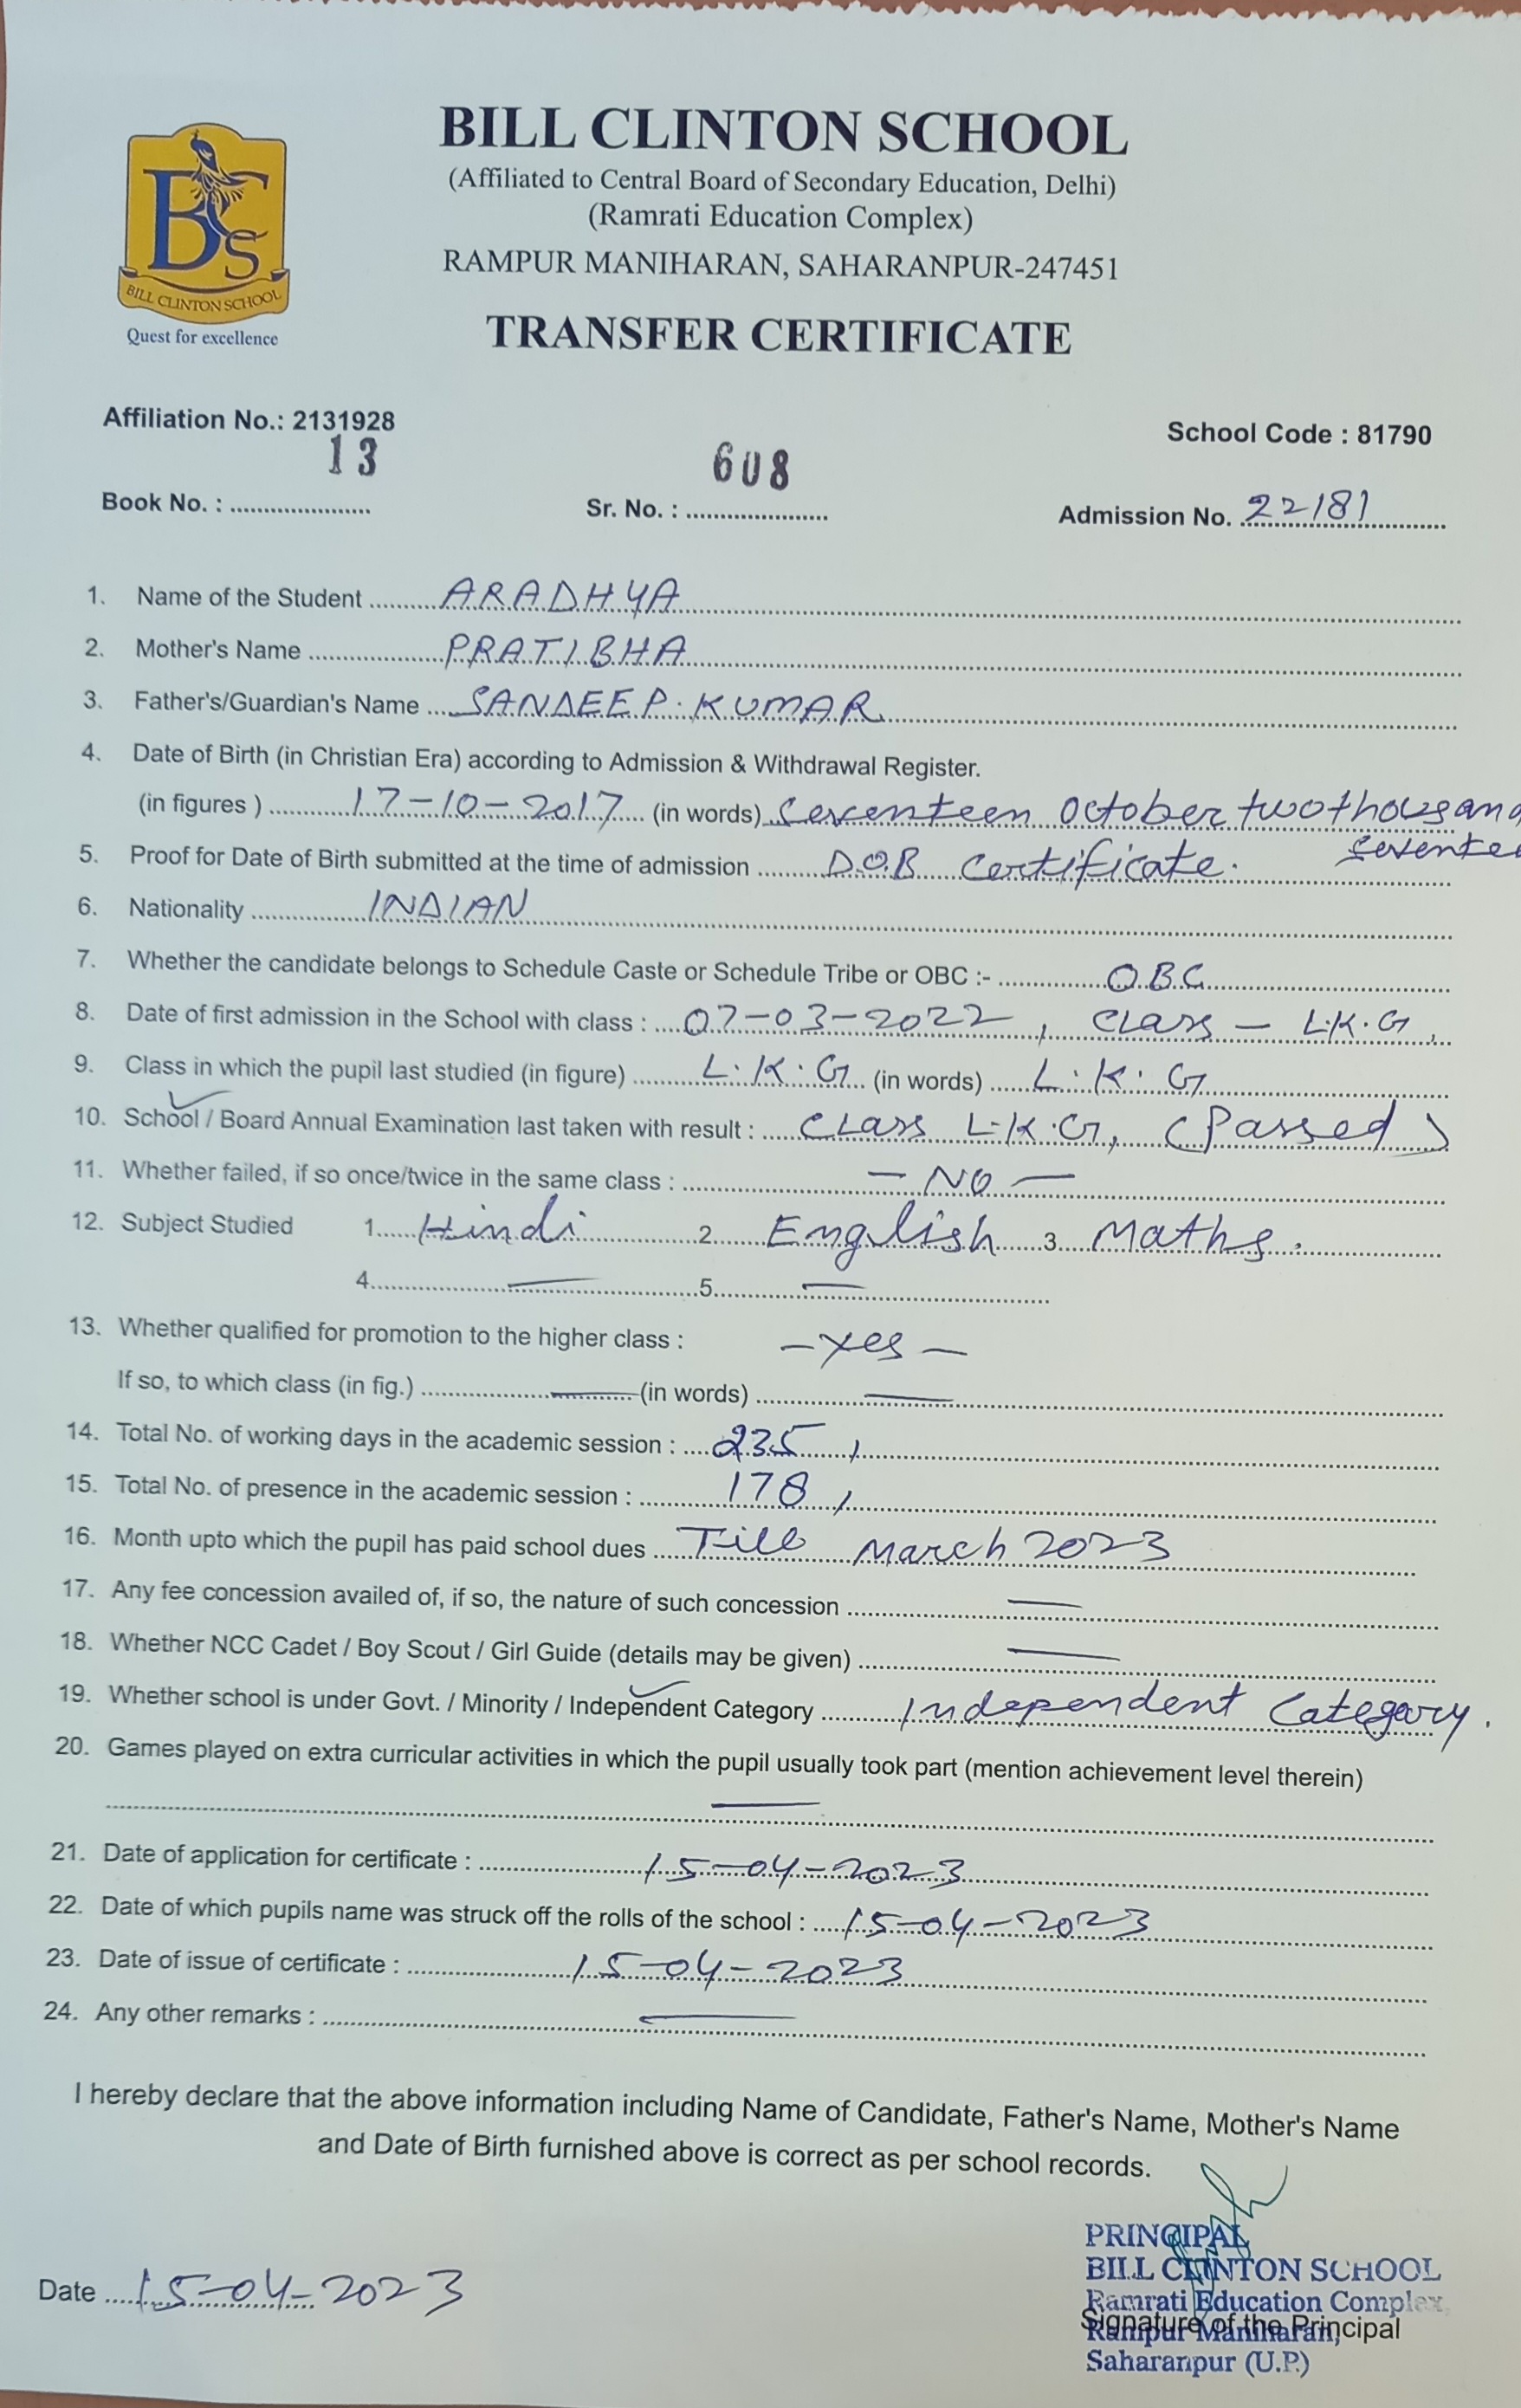 BILL CLINTON SCHOOL
(Affiliated to Central Board of Secondary Education, Delhi)
(Ramrati Education Complex)
RAMPUR MANIHARAN, SAHARANPUR-247451
TRANSFER CERTIFICATE
BCS
BILL CLINTON SCHOOL
Quest for excellence
Affiliation No.: 2131928
School Code : 81790
Book No. : 13
Sr. No. : 608
Admission No. 22181
1. Name of the Student ARADHYA
2. Mother's Name PRATIBHA
3. Father's/Guardian's Name SANDEEP KUMAR
4. Date of Birth (in Christian Era) according to Admission & Withdrawal Register.
(in figures ) 17-10-2017 (in words) Seventeen October two thousand
seventee
5. Proof for Date of Birth submitted at the time of admission D.O.B Certificate.
6. Nationality INDIAN
7. Whether the candidate belongs to Schedule Caste or Schedule Tribe or OBC :- O.B.C
8. Date of first admission in the School with class : 07-03-2022, CLASS - L.K.G,
9. Class in which the pupil last studied (in figure) L.K.G (in words) L.K.G
10. School / Board Annual Examination last taken with result : CLASS L.K.G, (Passed)
11. Whether failed, if so once/twice in the same class : - NO -
12. Subject Studied 1. Hindi 2. English 3. Maths.
4. — 5. —
13. Whether qualified for promotion to the higher class : - Yes -
If so, to which class (in fig.) — (in words) —
14. Total No. of working days in the academic session : 235,
15. Total No. of presence in the academic session : 178,
16. Month upto which the pupil has paid school dues Till March 2023
17. Any fee concession availed of, if so, the nature of such concession —
18. Whether NCC Cadet / Boy Scout / Girl Guide (details may be given) —
19. Whether school is under Govt. / Minority / Independent Category Independent Category.
20. Games played on extra curricular activities in which the pupil usually took part (mention achievement level therein)
—
21. Date of application for certificate : 15-04-2023
22. Date of which pupils name was struck off the rolls of the school : 15-04-2023
23. Date of issue of certificate : 15-04-2023
24. Any other remarks : —
I hereby declare that the above information including Name of Candidate, Father's Name, Mother's Name
and Date of Birth furnished above is correct as per school records.
PRINCIPAL
BILL CLINTON SCHOOL
Ramrati Education Complex,
Rampur Maniharan,
Signature of the Principal
Saharanpur (U.P.)
Date 15-04-2023